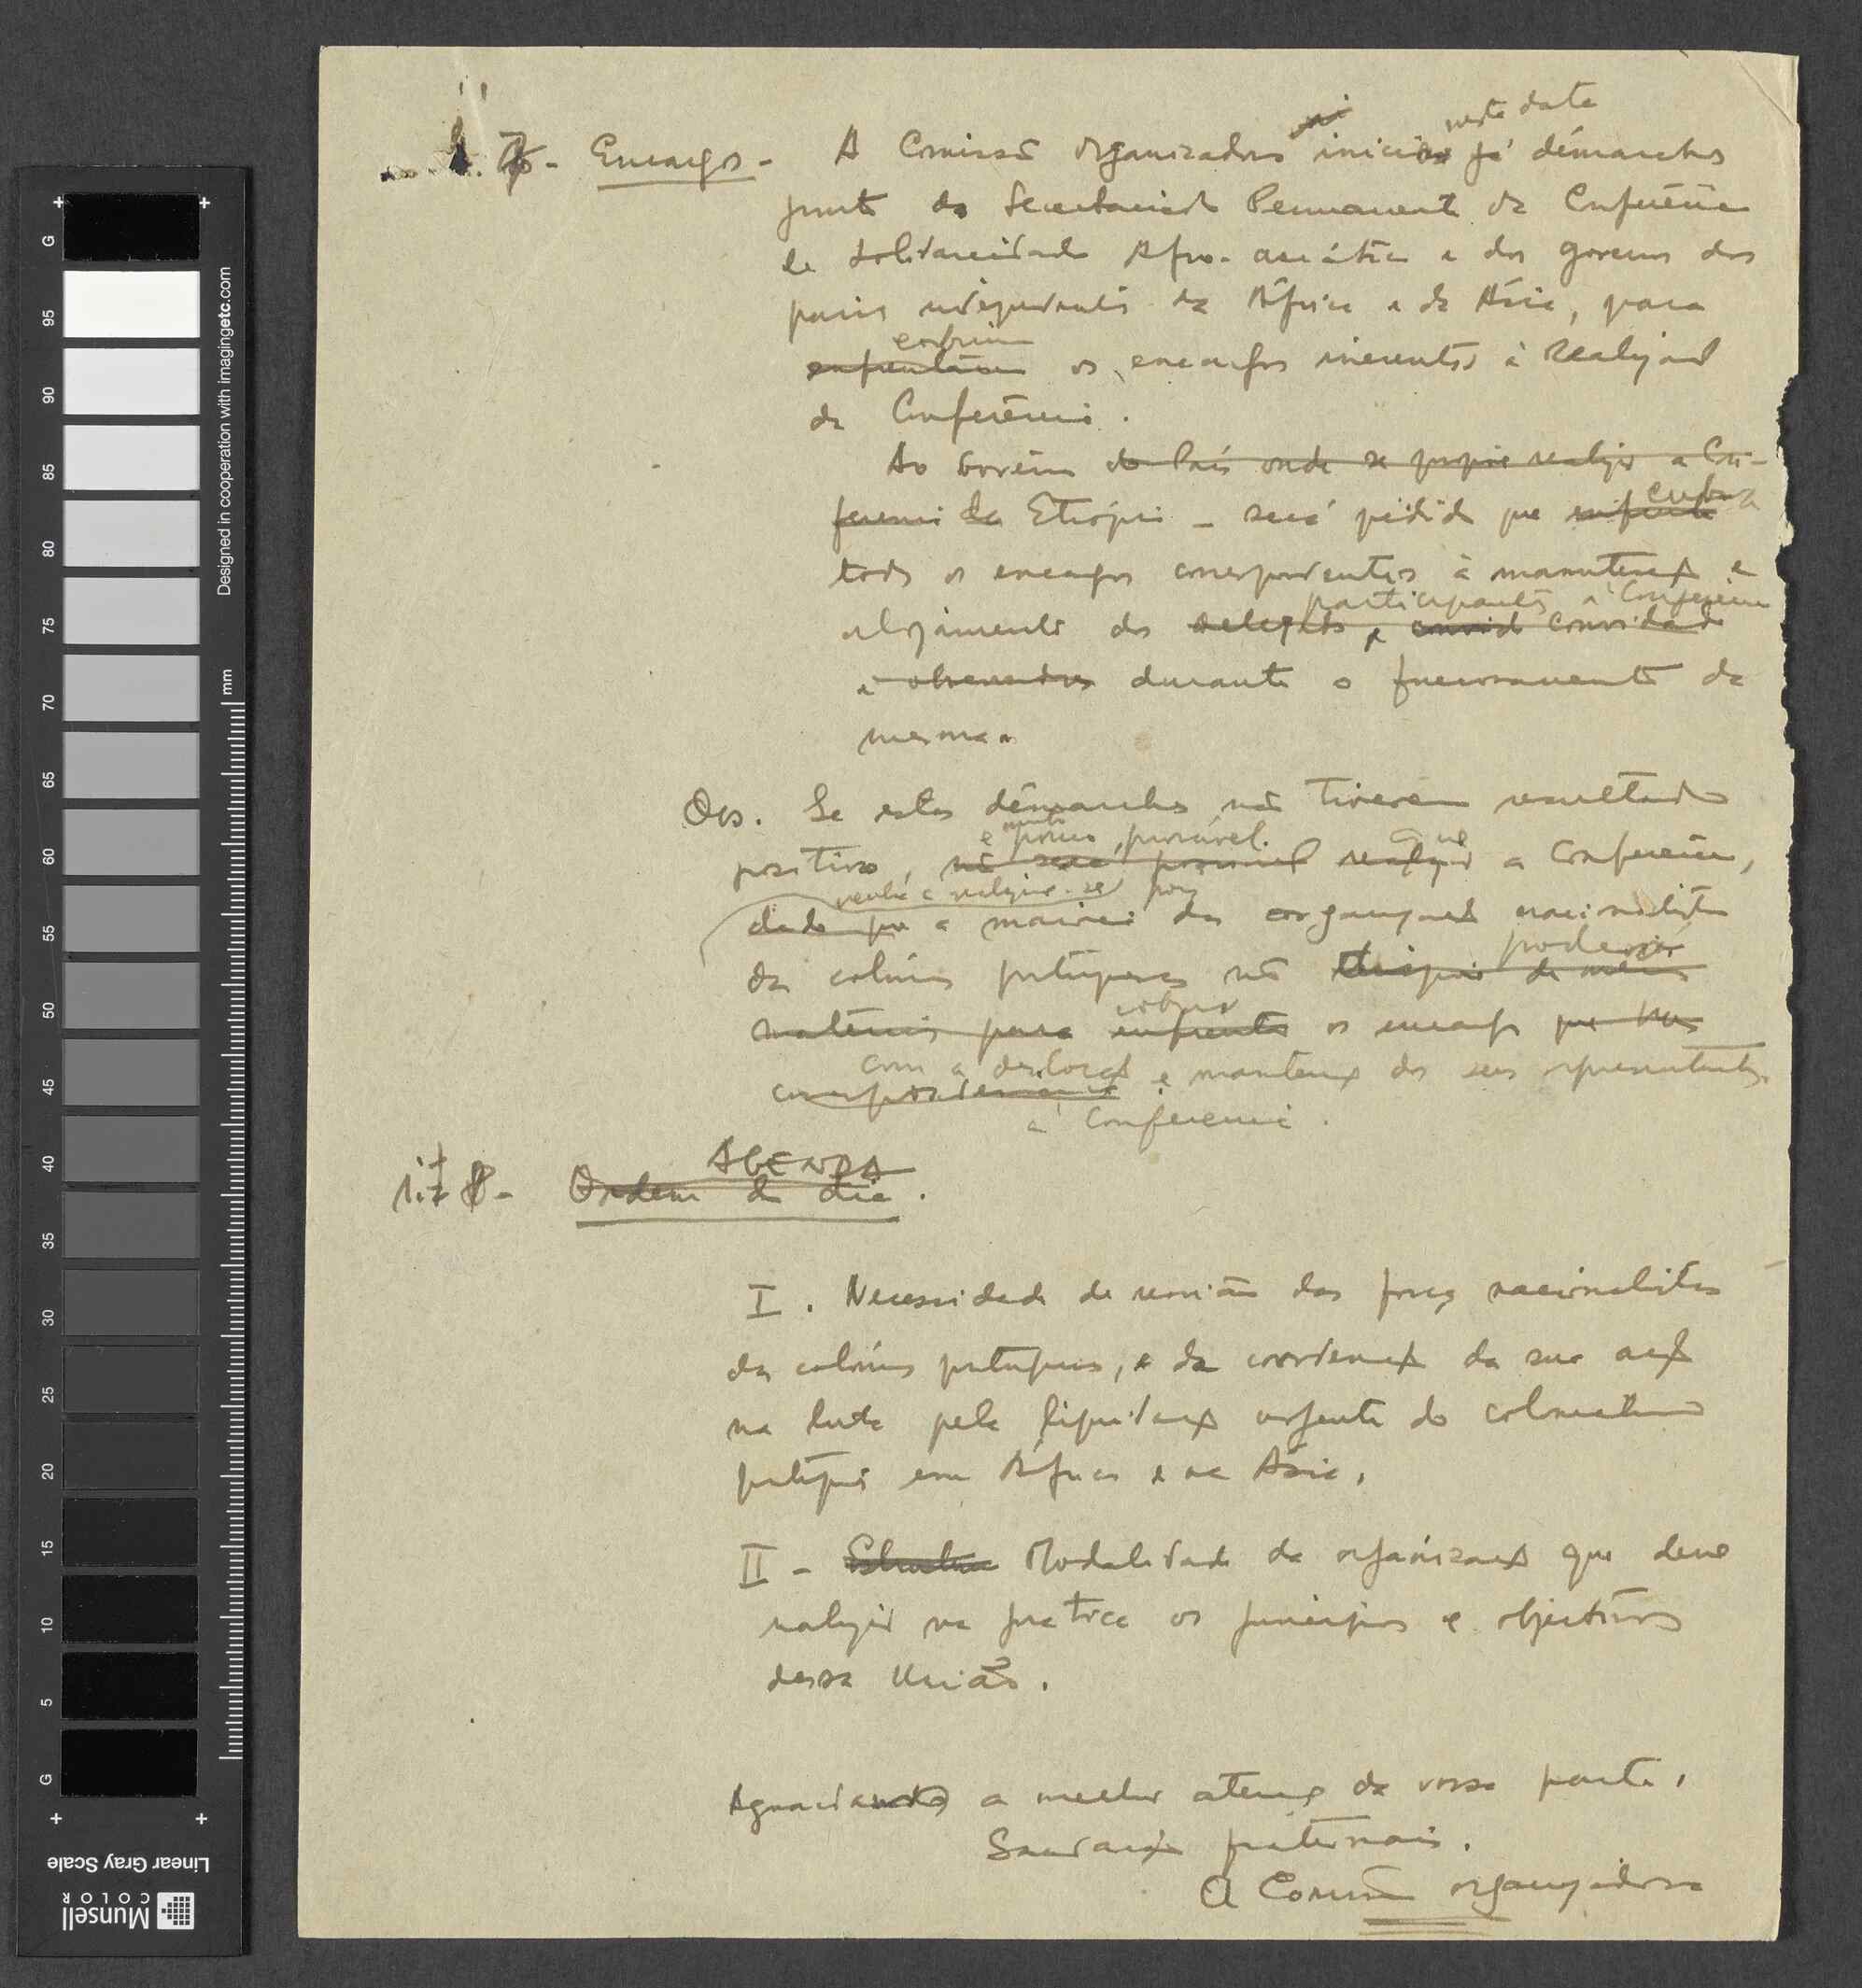 7 - Encargos - A Comissão organizadora inicia nesta data já démarches
junto do Secretariado Permanente da Conferência
de Solidariedade Afro-asiática e dos governos dos
países independentes da África e da Ásia, para
cobrirem
enfrentarem os encargos inerentes à Realização
da Conferência.
Ao Govêrno do País onde se propõe realizar a Con-
ferencia da Etiópia - será pedido que enfrente cubra
todos os encargos correspondentes à manutenção e
participantes à Conferência
alojamento dos delegados e convid convidados
e observadores durante o funcionamento da
mesma.
Obs. Se estas démarches não tiverem resultado
é muito pouco provável que
positivo, não será possivel realizar a Conferência,
venha a realizar-se pois
dado que a maioria das organizações nacionalistas
poderão
das colónias portuguesas não dispõe de meios
cobrir
materiais para enfrentar os encargos que lhes
com a deslocação e manutenção dos seus representantes
correspondem
à Conferencia.
AGENDA
8 - Ordem do dia.
I. Necessidade de reunião das forças nacionalistas
das colónias portuguesas, e da coordenação da sua acção
na luta pela liquidação urgente do colonialismo
português em África e na Ásia.
II - Estrutura Modalidade da organização que deve
realizar na pratica os princípios e objectivos
dessa União.
Agradecendo a melhor atenção da vossa parte,
Saudações fraternais.
A Comissão organizadora
Designed in cooperation with imagingetc.com
mm
G
95
90
85
80
75
70
65
60
55
50
45
40
35
30
25
20
15
10
5
G
Linear Gray Scale
Munsell
COLOR